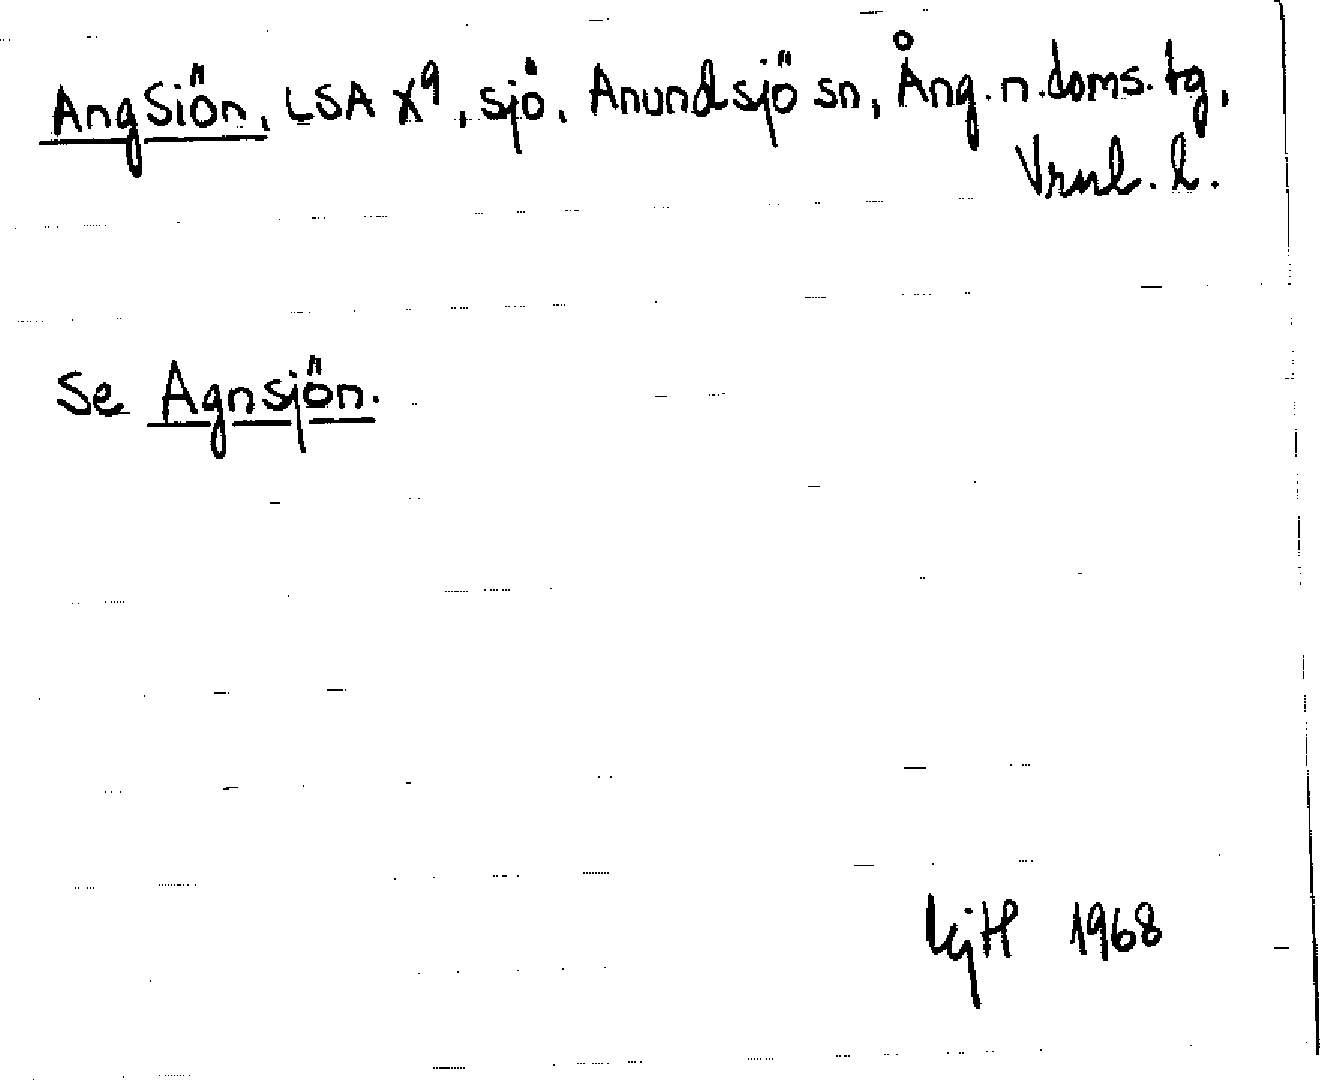 AngSiön, LSA X9, sjö, Anundsjö sn, Ång. n. doms. tg,
Vrnl. l.
Se Agnsjön.
KjH 1968